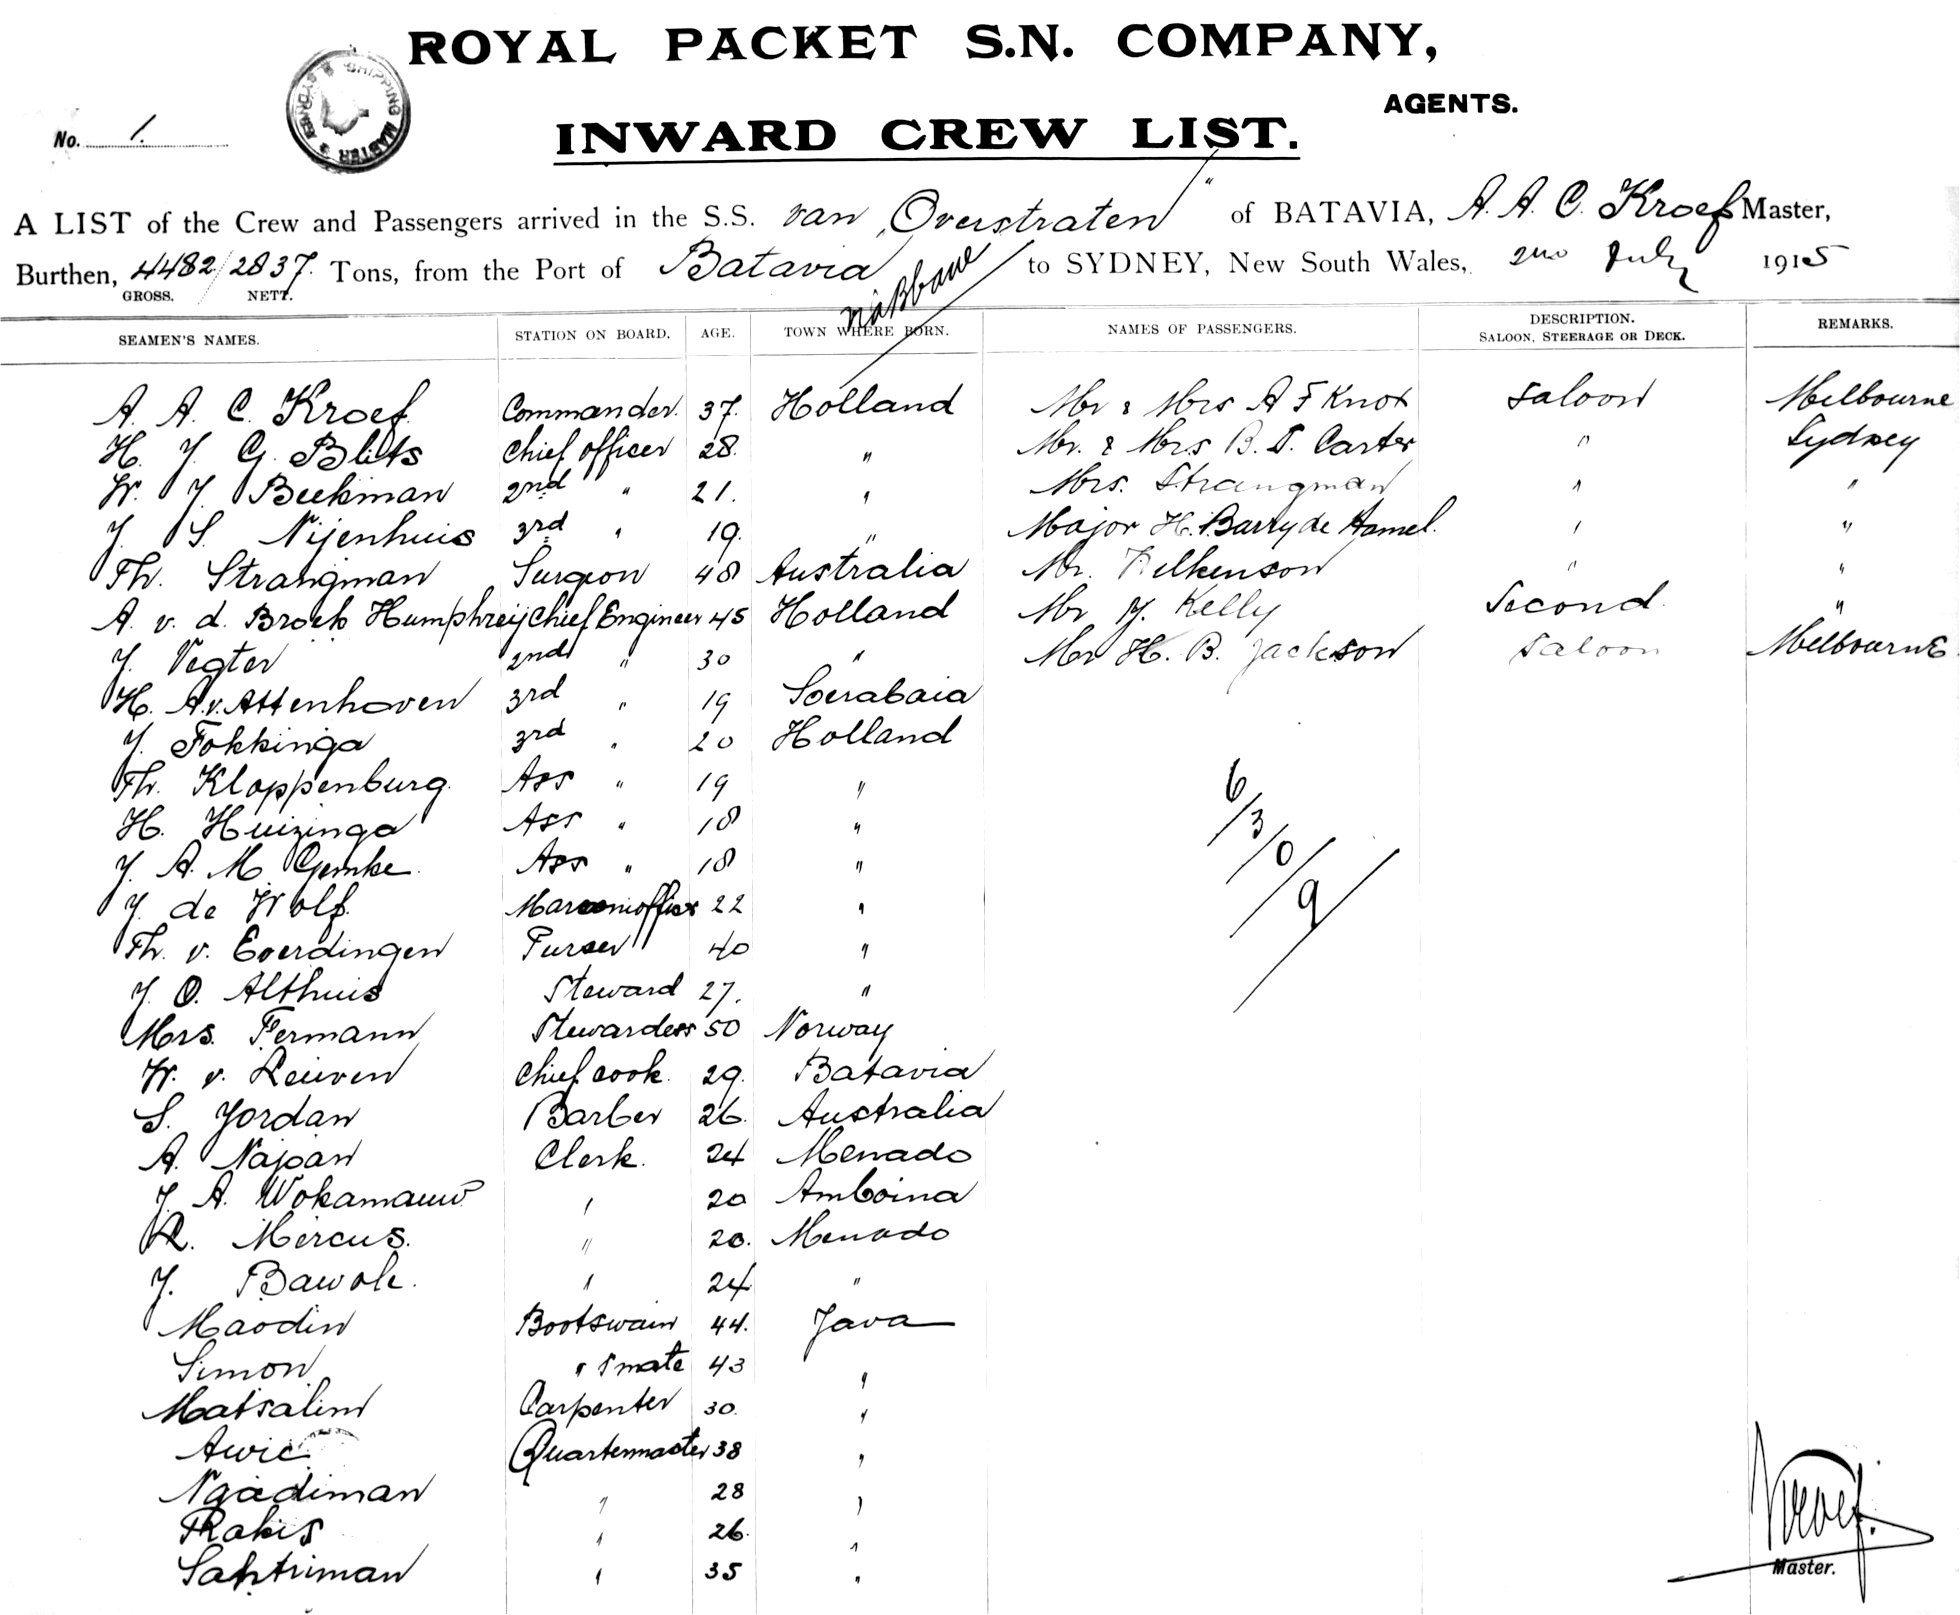 ROYAL PACKET S.N. COMPANY,
AGENTS.
SHIPPING MASTER SYDNEY
No. 1.
INWARD CREW LIST.
A LIST of the Crew and Passengers arrived in the S.S. van „Overstraten" of BATAVIA, A. A. C. Kroef Master,
Burthen, 4482/2837. Tons, from the Port of Batavia to SYDNEY, New South Wales, 2nd July 1915
GROSS. NETT.
via Brisbane
SEAMEN'S NAMES. STATION ON BOARD. AGE. TOWN WHERE BORN. NAMES OF PASSENGERS. DESCRIPTION. SALOON, STEERAGE OR DECK. REMARKS.
A. A. C. Kroef. Commander. 37. Holland Mr & Mrs A F Knox Saloon Melbourne
H. J. G. Blits Chief officer 28. " Mr. & Mrs B. T. Carter " Sydney
W. J. Beekman 2nd " 21. " Mrs. Strangman " "
J. S. Nijenhuis 3rd " 19. " Major H. Barry de Hamel. " "
Th. Strangman Surgeon 48 Australia Mr. Wilkenson " "
A. v. d. Broek Humphreij Chief Engineer 45 Holland Mr J. Kelly Second. "
J. Vegter 2nd " 30 " Mr H. B. Jackson Saloon Melbourne
H. A. v. Attenhoven 3rd " 19 Soerabaia
J. Fokkinga 3rd " 20 Holland
Th. Kloppenburg. Ass " 19 "
H. Huizinga Ass " 18 "
J. A. M. Gemke. Ass " 18 "
J. de Wolf. Marconi officer 22 "
Th. v. Everdingen Purser 40 "
J. O. Althuis Steward 27. "
Mrs. Fermann Stewardess 50 Norway
W. v. Leuven Chief cook. 29. Batavia
S. Jordan Barber 26. Australia
A. Najoan Clerk. 24 Menado
J. A. Wokamauw " 20 Amboina
R. Mercus. " 20. Menado
J. Bawole. " 24 "
Maodin Bootswain 44. Java
Simon " s mate 43 "
Matsalim Carpenter 30. "
Awie Quartermaster 38 "
Ngadiman " 28 "
Rakis " 26. "
Sahtriman " 35 "
6/3/0/9/
Kroef.
Master.